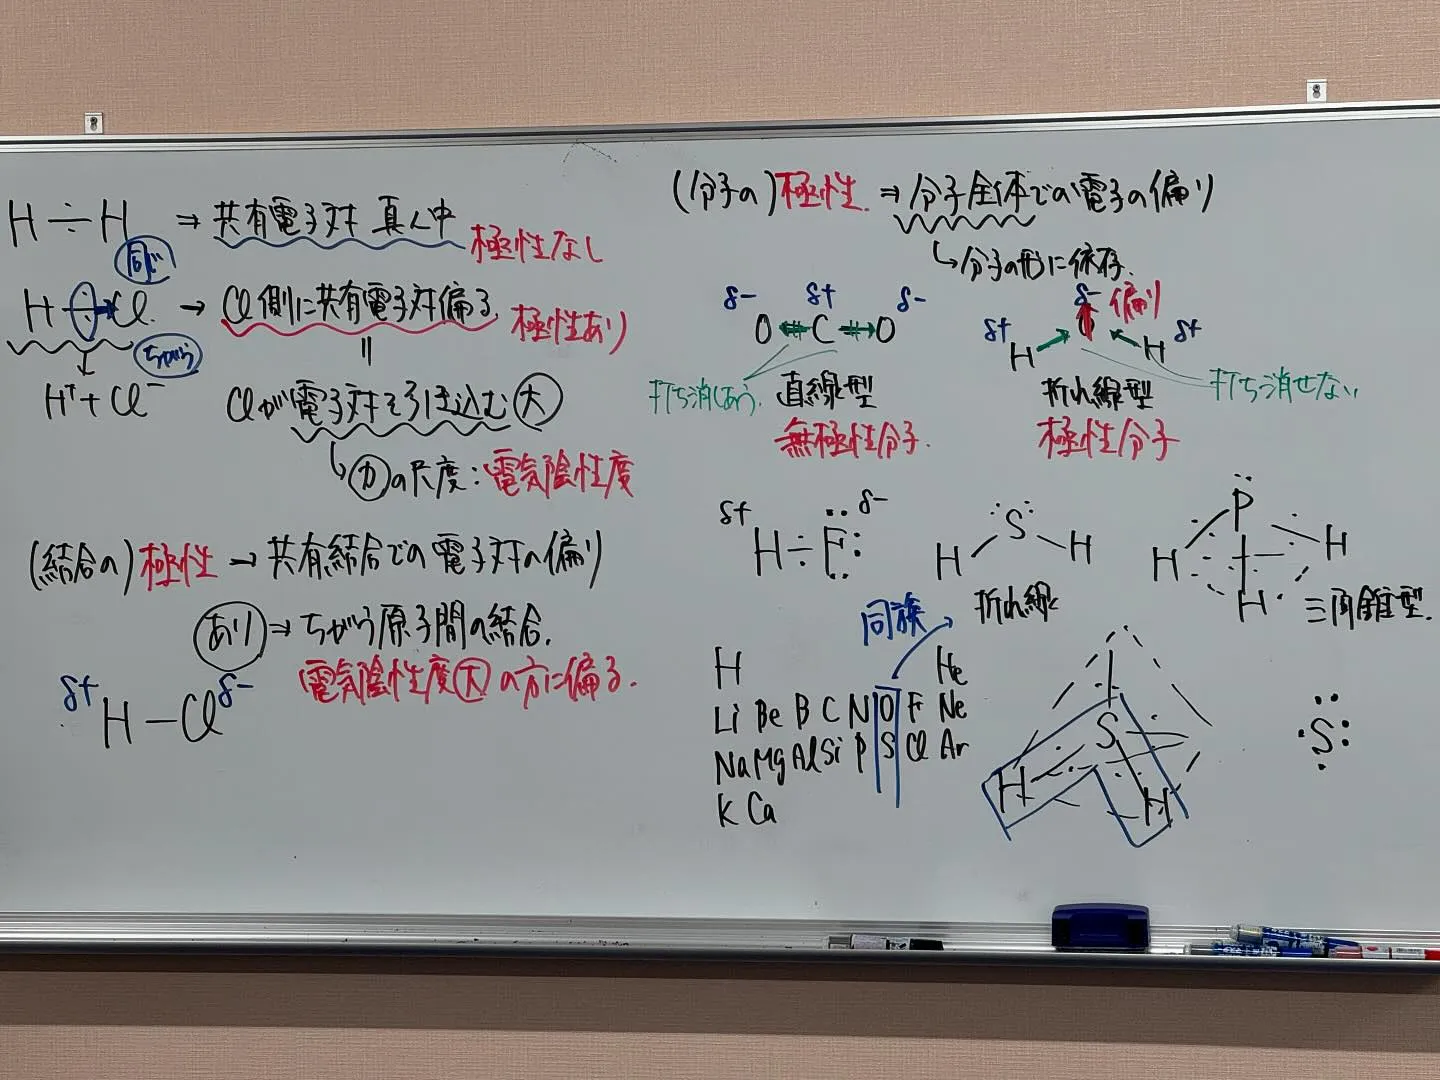 H ÷ H ⇒ 共有電子対 真ん中 極性なし
同じ
H — Cl → Cl側に共有電子対偏る 極性あり
ちがう
H⁺ + Cl⁻
Clが電子対を引き込む 大
力の尺度：電気陰性度
(結合の)極性 → 共有結合での電子対の偏り
あり ⇒ ちがう原子間の結合.
電気陰性度大の方に偏る.
δ+ H — Cl δ-
(分子の)極性 ⇒ 分子全体での電子の偏り
分子の形に依存.
δ- δ+ δ-
O C O
打ち消しあう. 直線型
無極性分子.
δ- 偏り
δ+ H O H δ+
折れ線型 打ち消せない
極性分子
δ+ H F δ-
H S H
折れ線
P
H H H
三角錐型.
同族
H He
Li Be B C N O F Ne
Na Mg Al Si P S Cl Ar
K Ca
S
H H
S